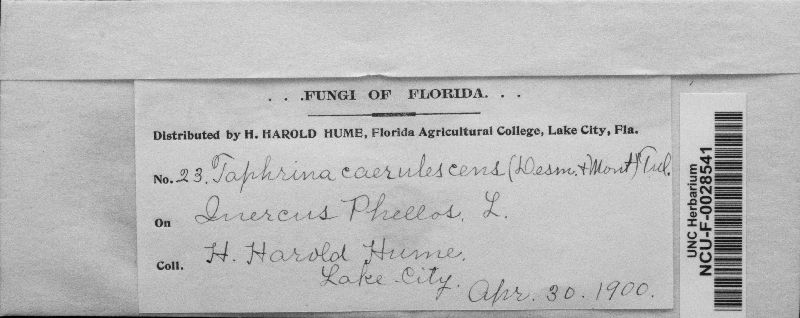 . . .FUNGI OF FLORIDA. . .
Distributed by H. HAROLD HUME, Florida Agricultural College, Lake City, Fla.
No. 23. Taphrina caerulescens (Desm. & Mont) Tul.
On Quercus Phellos, L.
Coll. H. Harold Hume.
Lake City.
Apr. 30. 1900.
UNC Herbarium
NCU-F-0028541